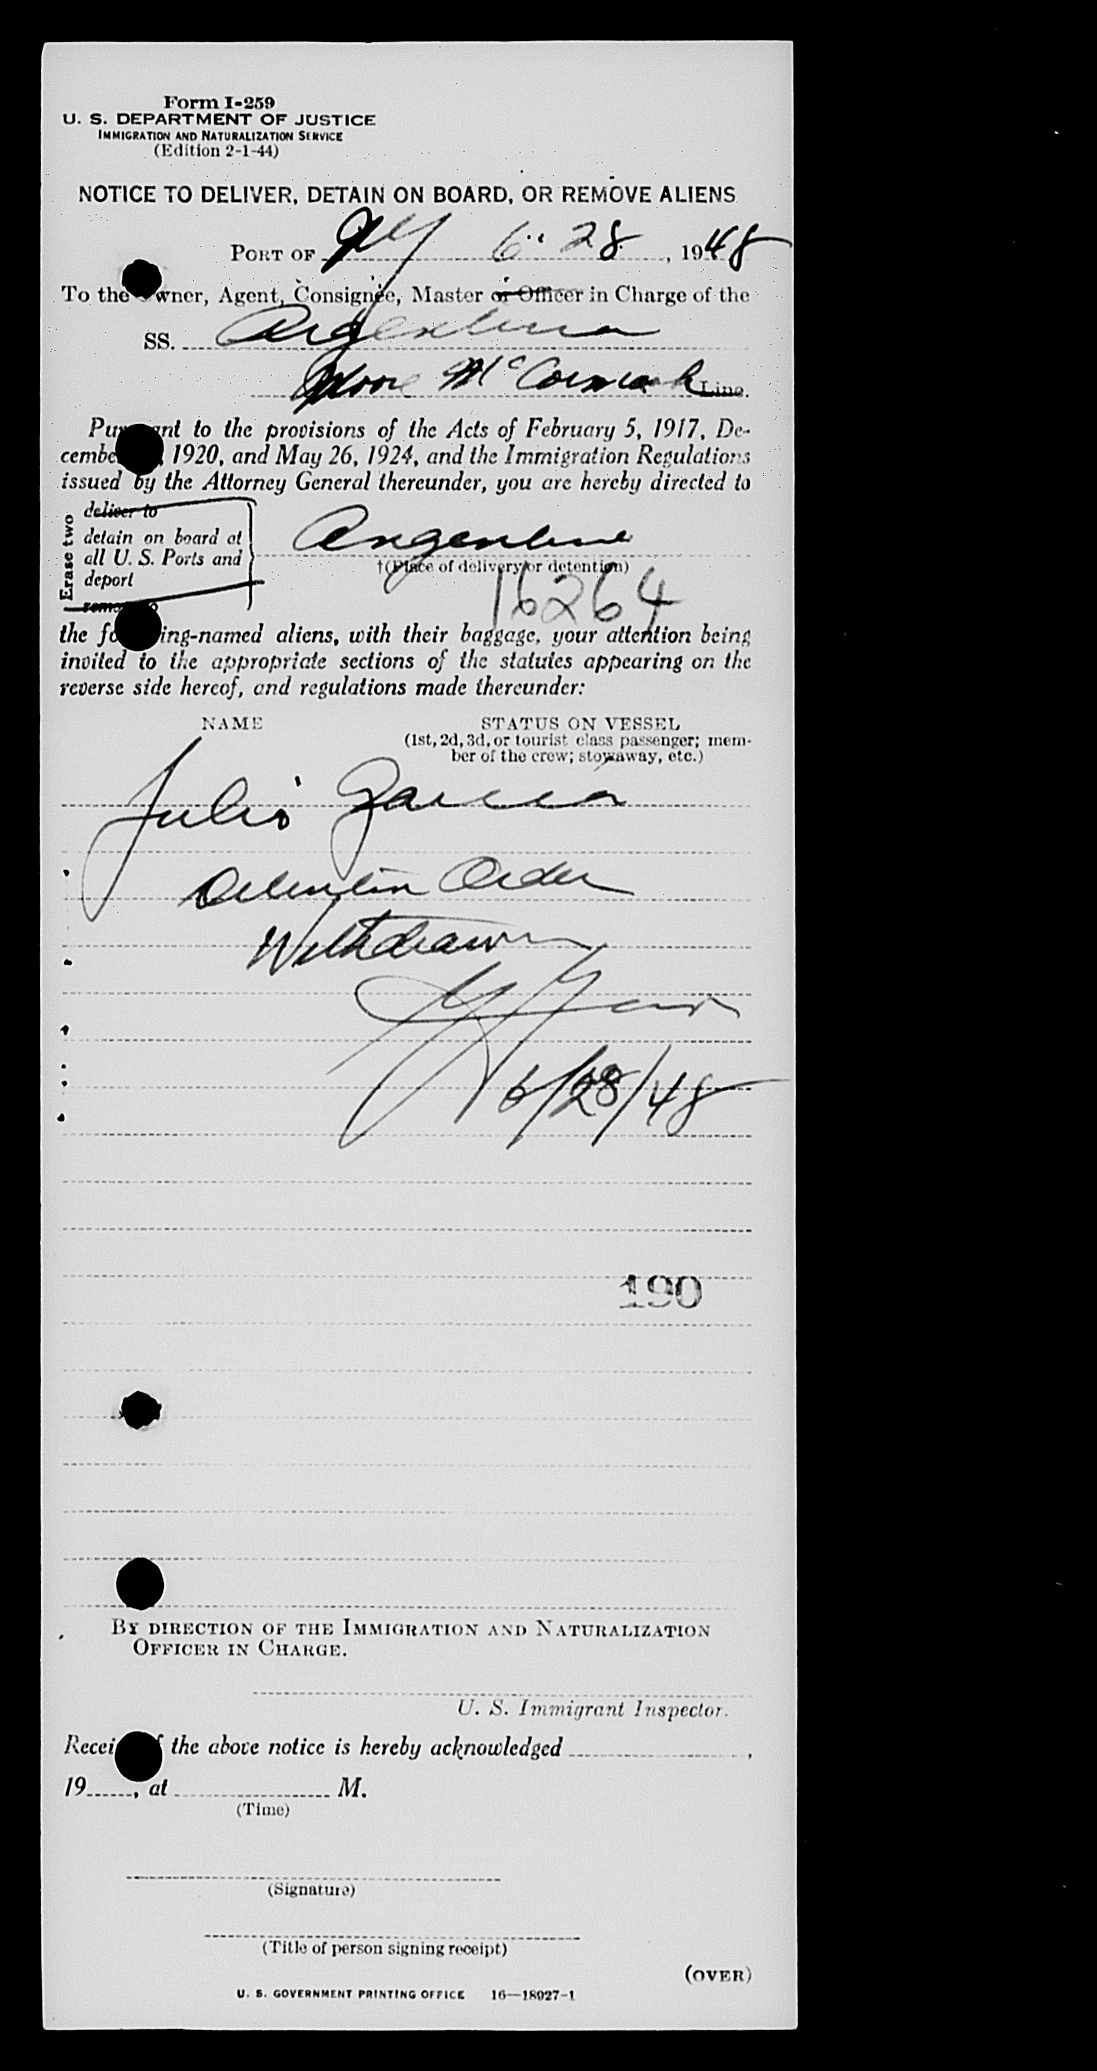 Form I-259
U. S. DEPARTMENT OF JUSTICE
IMMIGRATION AND NATURALIZATION SERVICE
(Edition 2-1-44)
NOTICE TO DELIVER, DETAIN ON BOARD, OR REMOVE ALIENS
PORT OF NY 6 28, 1948
To the Owner, Agent, Consignee, Master or Officer in Charge of the
SS. Argentina
Moore McCormack Line.
Pursuant to the provisions of the Acts of February 5, 1917, De-
cember , 1920, and May 26, 1924, and the Immigration Regulations
issued by the Attorney General thereunder, you are hereby directed to
Erase two
deliver to
detain on board at
all U. S. Ports and
deport
remove to
Argentina
†(Place of delivery or detention)
16264
the following-named aliens, with their baggage, your attention being
invited to the appropriate sections of the statutes appearing on the
reverse side hereof, and regulations made thereunder:
NAME STATUS ON VESSEL
(1st, 2d, 3d, or tourist class passenger; mem-
ber of the crew; stowaway, etc.)
Julio Garcia
Detention Order
Withdrawn
6/28/48
190
BY DIRECTION OF THE IMMIGRATION AND NATURALIZATION
OFFICER IN CHARGE.
U. S. Immigrant Inspector.
Receipt of the above notice is hereby acknowledged ,
19 , at M.
(Time)
(Signature)
(Title of person signing receipt)
(OVER)
U. S. GOVERNMENT PRINTING OFFICE 16—18927-1